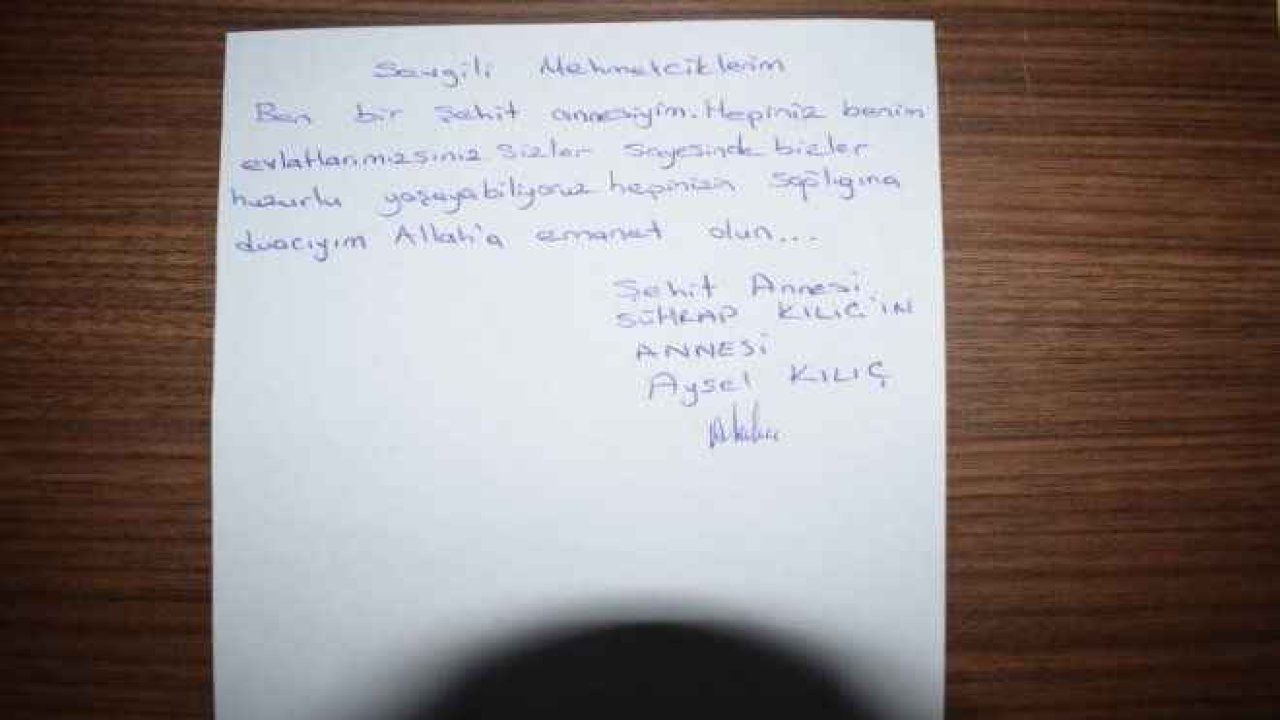 Sevgili Mehmetciklerim
Ben bir Şehit annesiyim. Hepiniz benim
evlatlarımızsınız sizler sayesinde bizler
huzurlu yaşayabiliyoruz hepinizin sağlığına
duacıyım Allah'a emanet olun...
Şehit Annesi
SÜHRAP KILIÇ'IN
ANNESİ
Aysel KILIÇ